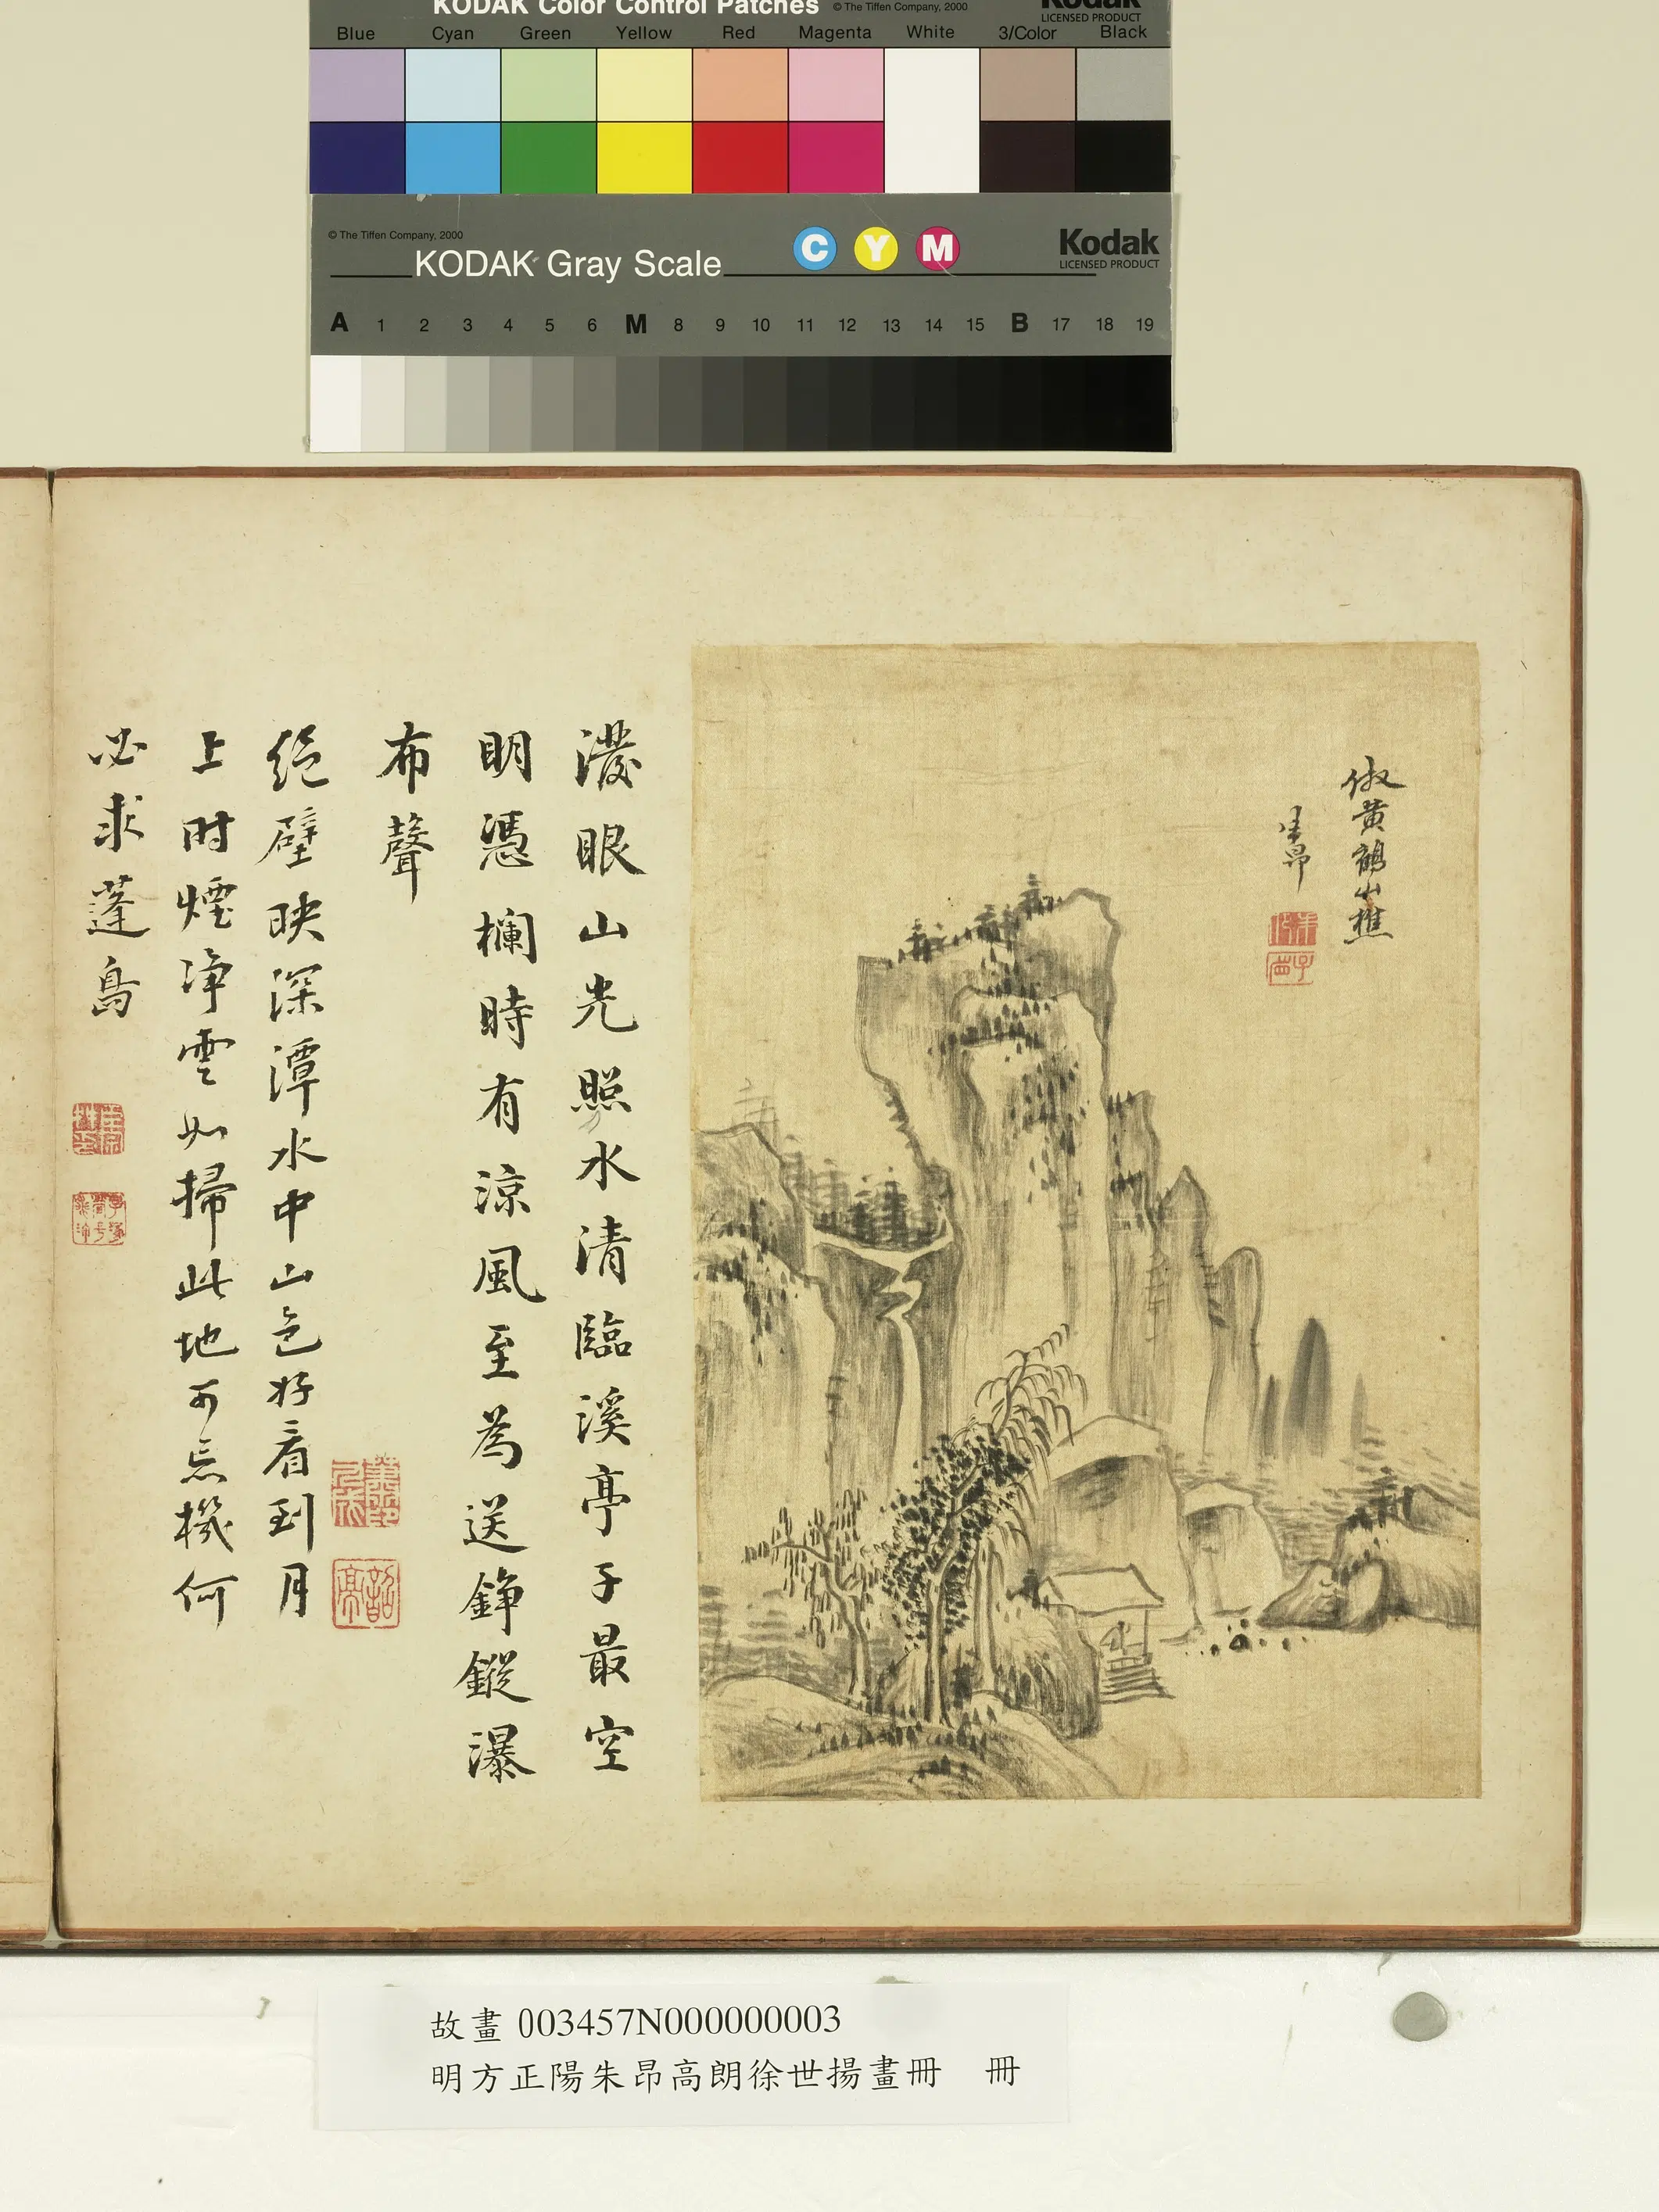 KODAK Color Control Patches © The Tiffen Company, 2000 Kodak
LICENSED PRODUCT
Blue Cyan Green Yellow Red Magenta White 3/Color Black
© The Tiffen Company, 2000
KODAK Gray Scale C Y M Kodak
LICENSED PRODUCT
A 1 2 3 4 5 6 M 8 9 10 11 12 13 14 15 B 17 18 19
倣黃鶴山樵
朱昂
潑眼山光照水清臨溪亭子最空
明憑欄時有涼風至為送錚鏦瀑
布聲
絕壁映深潭水中山色好看到月
上时煙淨雲如掃此地可忘機何
必求蓬島
故畫 003457N000000003
明方正陽朱昂高朗徐世揚畫冊 冊